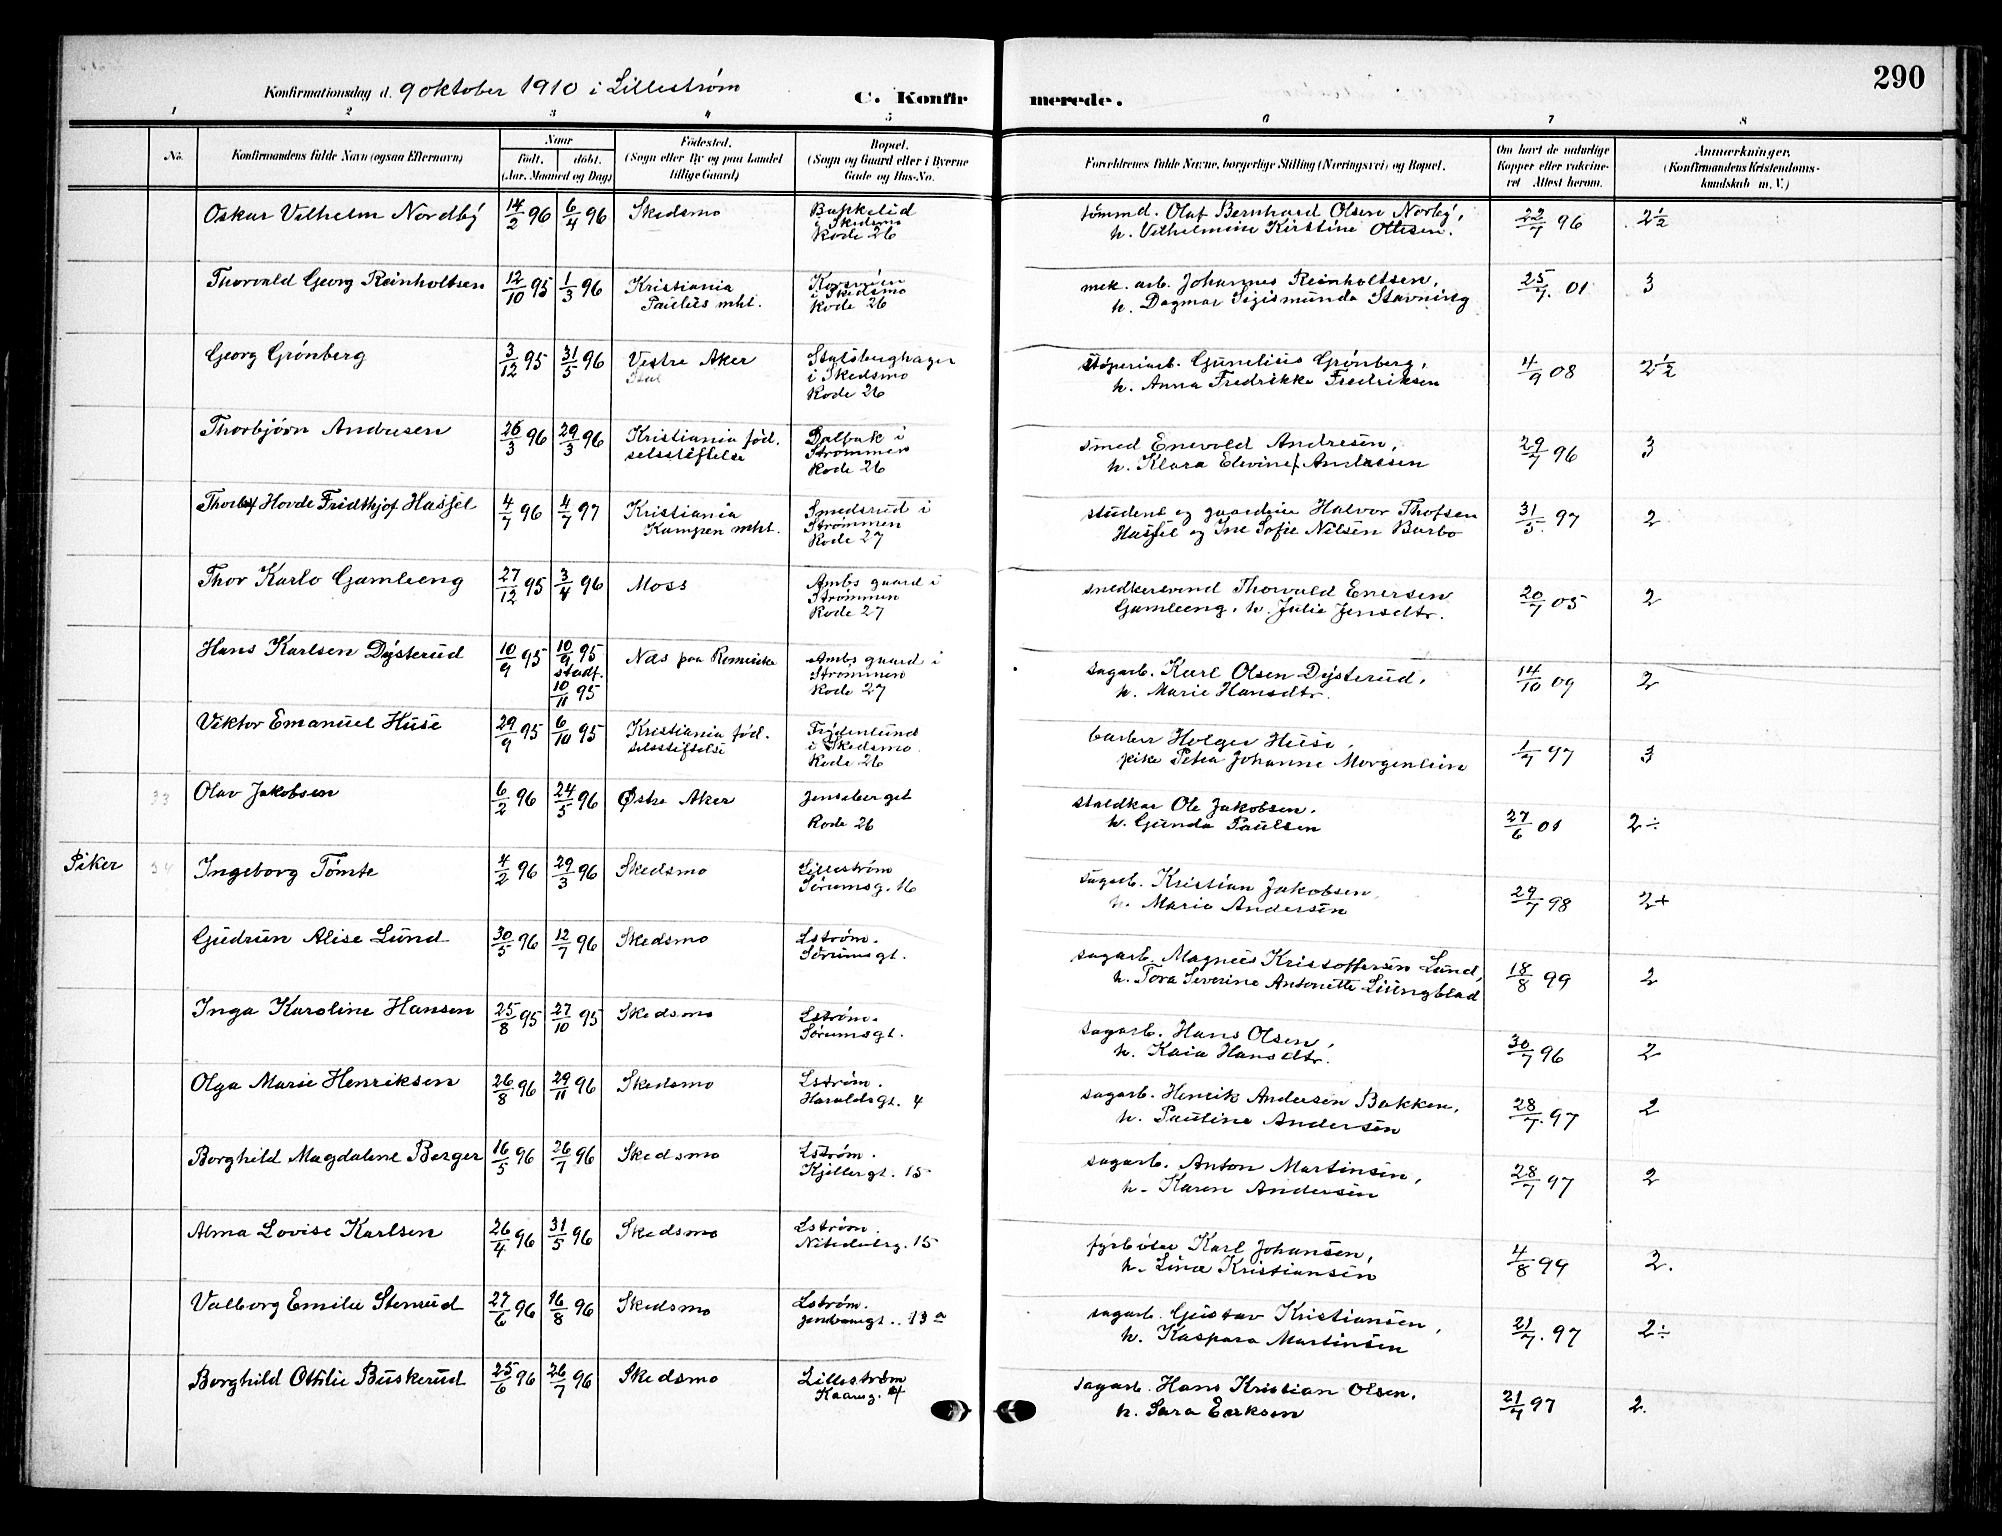 290
Konfirmationsdag d. 9 oktober 1910 i Lillestrøm C. Konfirmerede.
1 2 3 4 5 6 7 8
No. Konfirmandens fulde Navn (ogsaa Efternavn) Naar født. døbt. (Aar, Maaned og Dag) Fødested. (Sogn eller By og paa Landet tillige Gaard) Bopæl. (Sogn og Gaard eller i Byerne Gade og Hus-No. Forældrenes fulde Navne, borgerlige Stilling (Næringsvei) og Bopæl. Om havt de naturlige Kopper eller vakcineret. Attest herom. Anmærkninger. (Konfirmandens Kristendomskundskab m. V.)
Oskar Vilhelm Nordbÿ 14/2 96 6/4 96 Skedsmo i Skedsmo Rode 26 tømmd. Olaf Bernhard Olsen Norbÿ, h. Vilhelmine Kirstine Ottesen. 22/7 96 2½
Thorvald Georg Reinholtsen 12/10 95 1/3 96 Kristiania Paulus mht. i Skedsmo Rode 26 mek. arb. Johannes Reinholtsen, h. Dagmar Sigismunda Stavning 25/7. 01 3
Georg Grønberg 3/12 95 31/5 96 Vestre Aker Stalsberghagen i Skedsmo Rode 26 støperiarb. Gunelius Grønberg, h. Anna Fredrikke Fredriksen 4/9 08 2½
Thorbjørn Andresen 26/3 96 29/3 96 Kristiania fødselsstiftelse Dalbak i Strømmen Rode 26 smed Enevold Andresen, h. Klara Elevine Andresen 29/7 96 3
Thorleif Hovde Fridthjof Hassel 4/7 96 4/7 97 Kristiania Kampen mht. Smedsrud i Strømmen Rode 27 student og gaardeier Halvor Thofsen Hassel og Ine Sofie Nilsen Barbo 31/5. 97 2
Thor Karlo Gamleeng 27/12 95 3/4 96 Moss Ambs gaard i Strømmen Rode 27 snedkersvend Thorvald Enersen Gamleeng, h. Julie Jensdtr. 20/7 05 2
Hans Karlsen Dÿsterud 10/9 95 10/9 95 stadf. 10/11 95 Nes paa Romerike Ambs gaard i Strømmen Rode 27 sagarb. Karl Olsen Dÿsterud, h. Marie Hansdtr. 14/10 09 2
Viktor Emanuel Huse 29/9 95 6/10 95 Kristiania fødselsstiftelse Frÿdenlund i Skedsmo. Rode 26 barber Holger Huse, pike Petra Johanne Morgenlien 1/7 97 3
33 Olav Jakobsen 6/2 96 24/5 96 Østre Aker Jensberget Rode 26 staldkar Ole Jakobsen. h. Gunda Paulsen 27/6 01 2÷
Piker 34 Ingeborg Tømte 4/2 96 29/3 96 Skedsmo Lillestrøm Sørumsg. 16 sagarb. Kristian Jakobsen, h. Marie Andersen 29/7 98 2+
Gudrun Alise Lund 30/5 96 12/7 96 Skedsmo Lstrøm. Sørumsgt. sagarb. Magnus Kristoffersen Lund, h. Tora Severine Antonette Liungblad 18/8 99 2
Inga Karoline Hansen 25/8 95 27/10 95 Skedsmo Lstrøm. Sørumsgt. sagarb. Hans Olsen, h. Kaia Hansdtr. 30/7 96 2
Olga Marie Henriksen 26/8 96 29/11 96 Skedsmo Lstrøm. Haraldsgt. 4 sagarb. Henrik Andersen Bakken, h. Pauline Andersen 28/7. 97 2
Borghild Magdalene Berger 16/5 96 26/7 96 Skedsmo Lstrøm. Kjellergt. 15 sagarb. Anton Martinsen, h. Karen Andersen 28/7 97 2
Alma Lovise Karlsen 26/4 96 31/5 96 Skedsmo Lstrøm. Nitedalsg. 15 fÿrbøter Karl Johansen, h. Lina Kristiansen 4/8 99 2.
Valborg Emilie Stensrud 27/6 96 16/8 96 Skedsmo Lstrøm. Jernbanegt. 13 a sagarb. Gustav Kristiansen, h. Kaspara Martinsen 21/7. 97 2÷
Borghild Ottilie Buskerud 25/6 96 26/7 96 Skedsmo Lillestrøm 4 sagarb. Hans Kristian Olsen, h. Sara Eriksen 21/7 97 2.